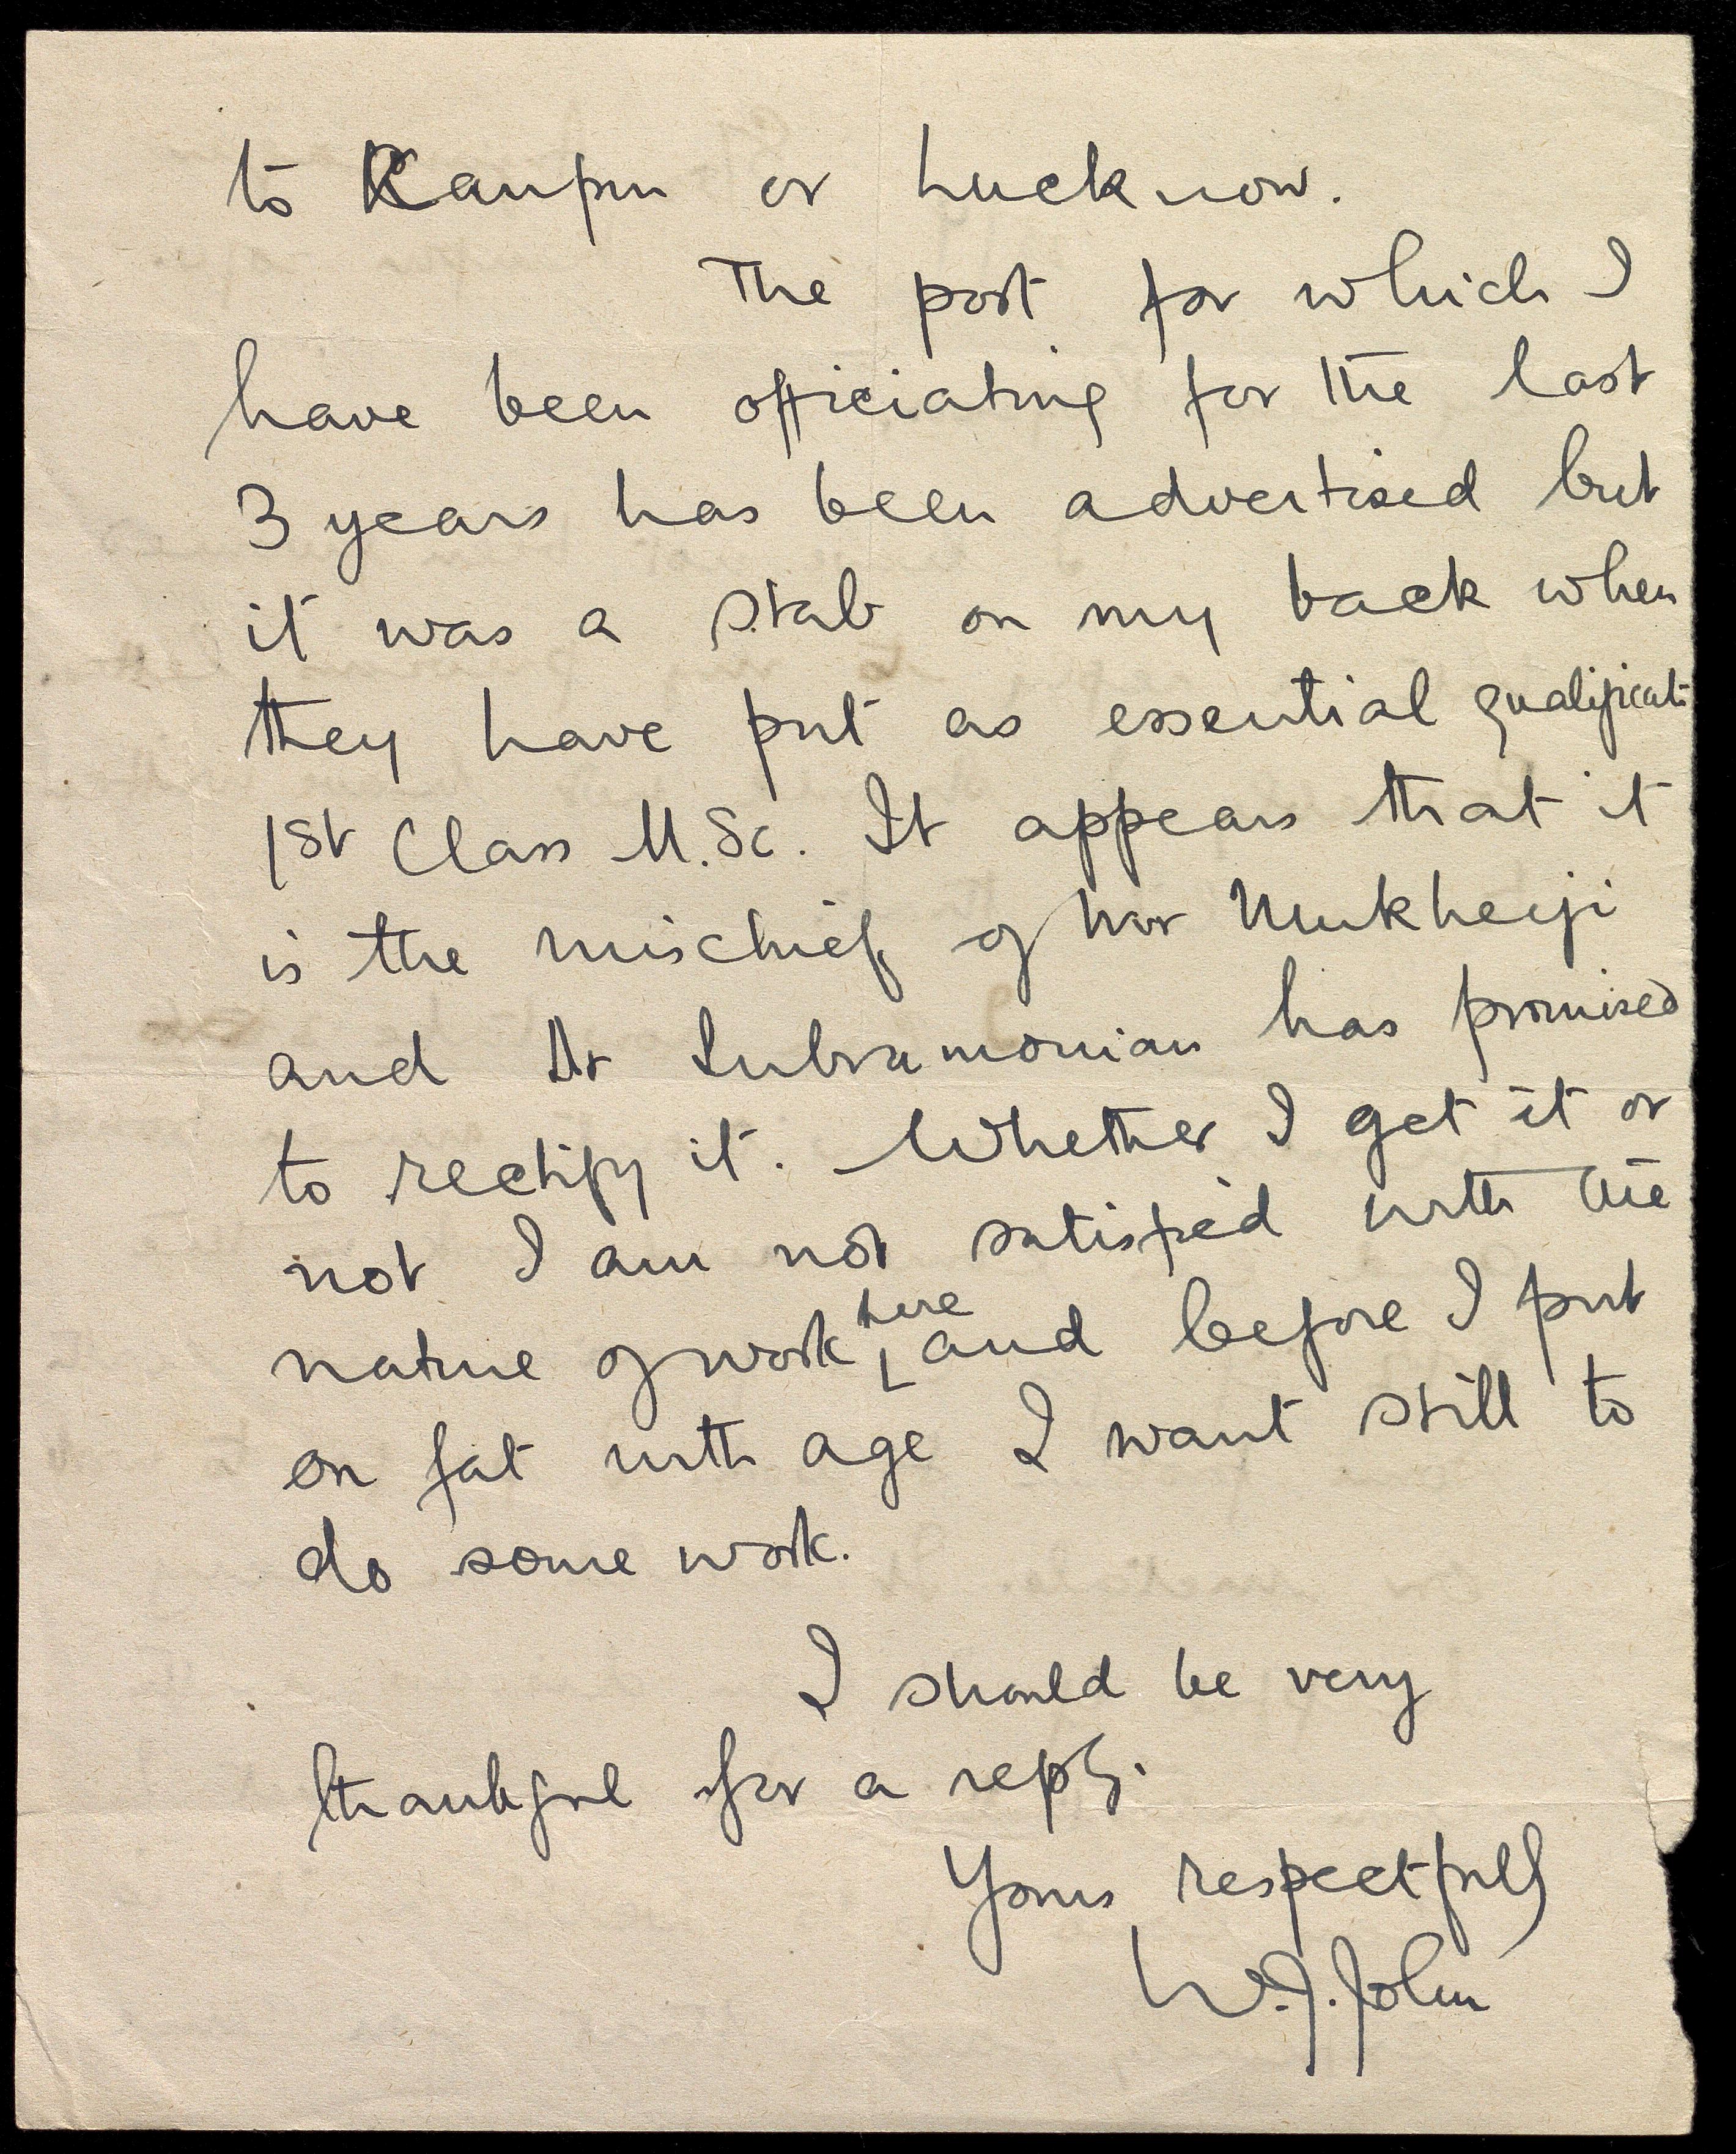 to Kanpur or Lucknow.
The post for which I
have been officiating for the last
3 years has been advertised but
it was a stab on my back when
they have put as essential qualificati
1st Class M.Sc. It appears that it
is the mischief of Mukherji
and Dr Subramonian has promised
to rectify it. Whether I get it or
not I am not satisfied with the
nature of work here and before I put
on fat with age I want still to
do some work.
I should be very
thankful for a reply.
Yours respectfully
W.J. John